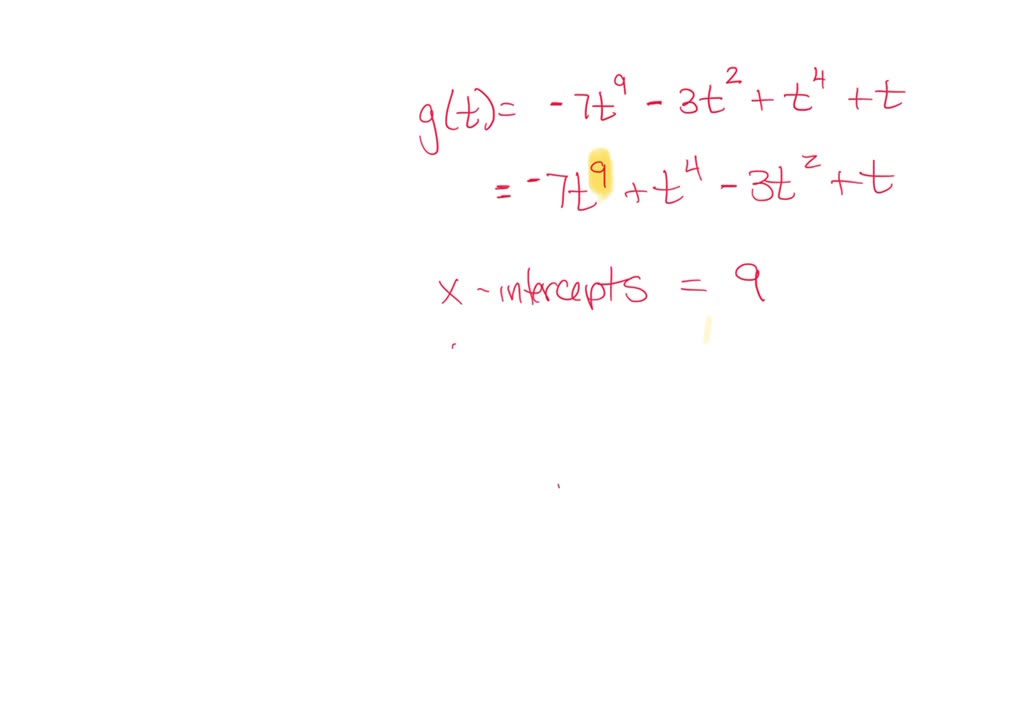 g(t) = -7t⁹ - 3t² + t⁴ + t
= -7t⁹ + t⁴ - 3t² + t
x-intercepts = 9